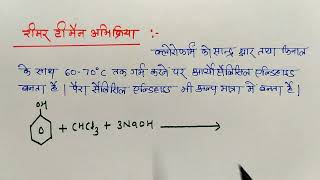 रीमर टीमैन अभिक्रिया :-
क्लोरोफार्म को सान्द्र क्षार तथा फिनाल
के साथ 60-70°C तक गर्म करने पर आर्थो सैलिसिल एल्डिहाइड
बनता है। पैरा सैलिसिल एल्डिहाइड भी अल्प मात्रा में बनता है।
OH
+ CHCl3 + 3NaOH